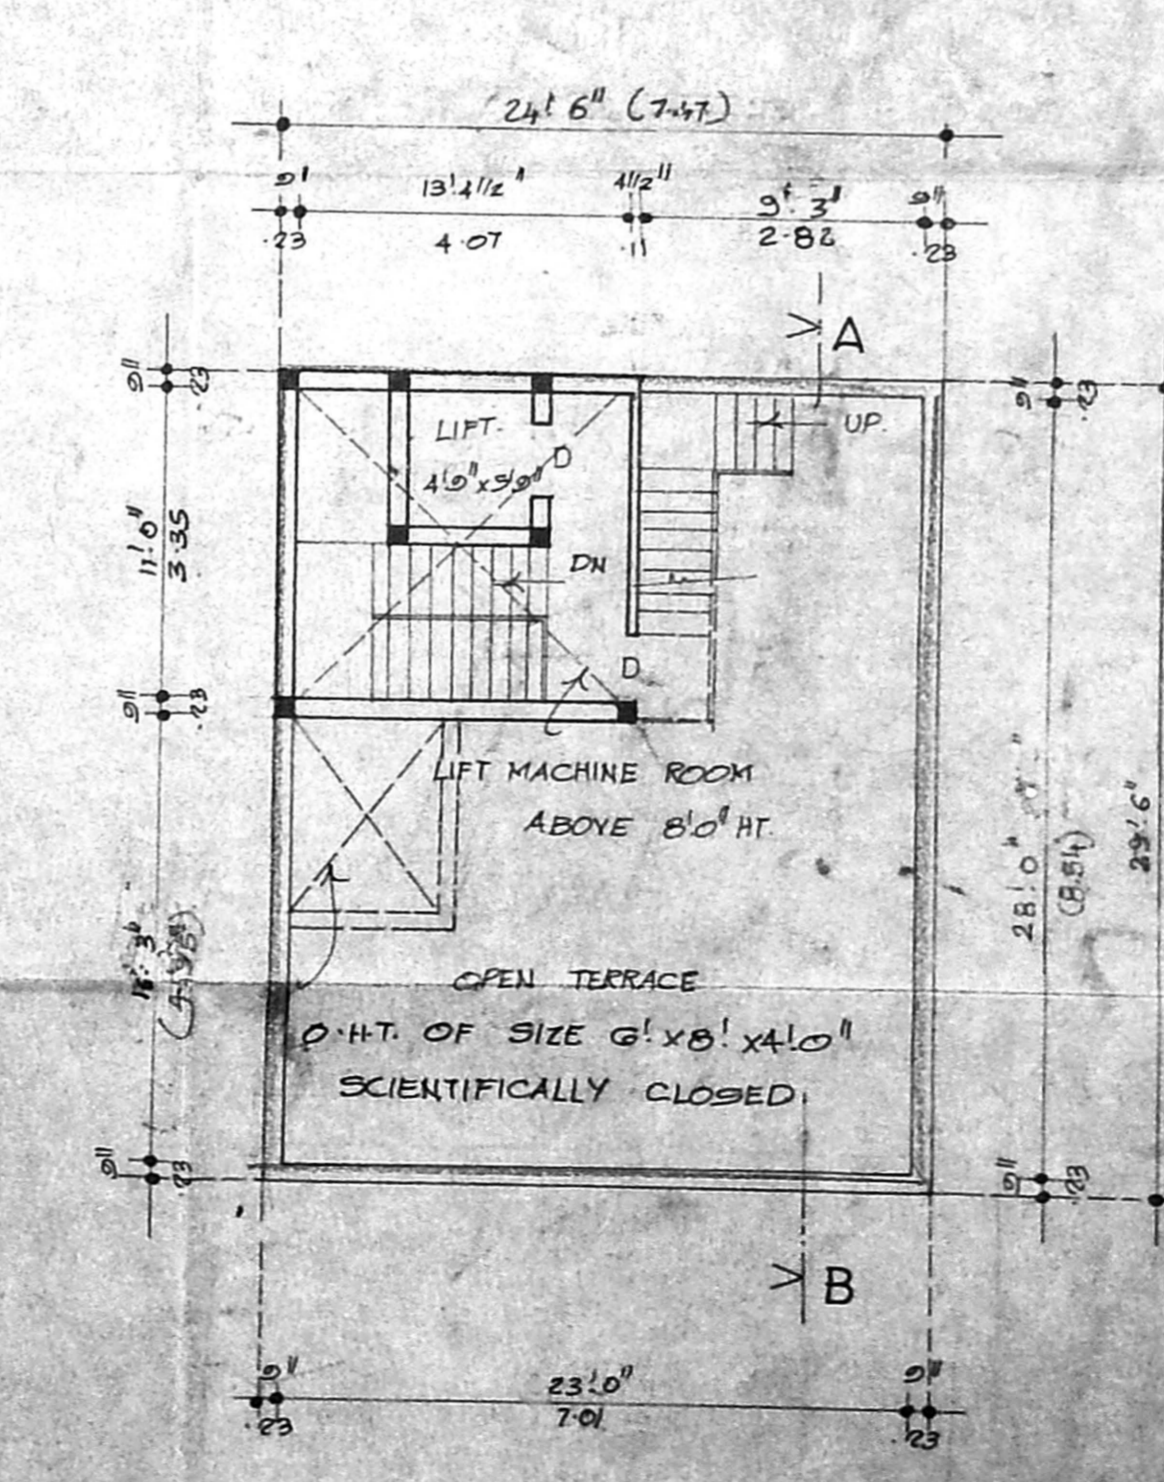 24' 6" (7.47)
9' 13'.4 1/2" 4 1/2" 9'. 3" 9"
.23 4.07 .11 2.82 .23
A
9" .23
9" .23
LIFT.
UP.
D
4'9" x 5'9"
11'.0"
3.35
DN
D
9" .23
LIFT MACHINE ROOM
ABOVE 8'.0" HT.
28'.0"
(8.54)
29'.6"
OPEN TERRACE
O.H.T. OF SIZE 6' x 8' x 4'.0"
SCIENTIFICALLY CLOSED.
9" .23
9" .23
B
9" 23'.0" 9"
.23 7.01 .23